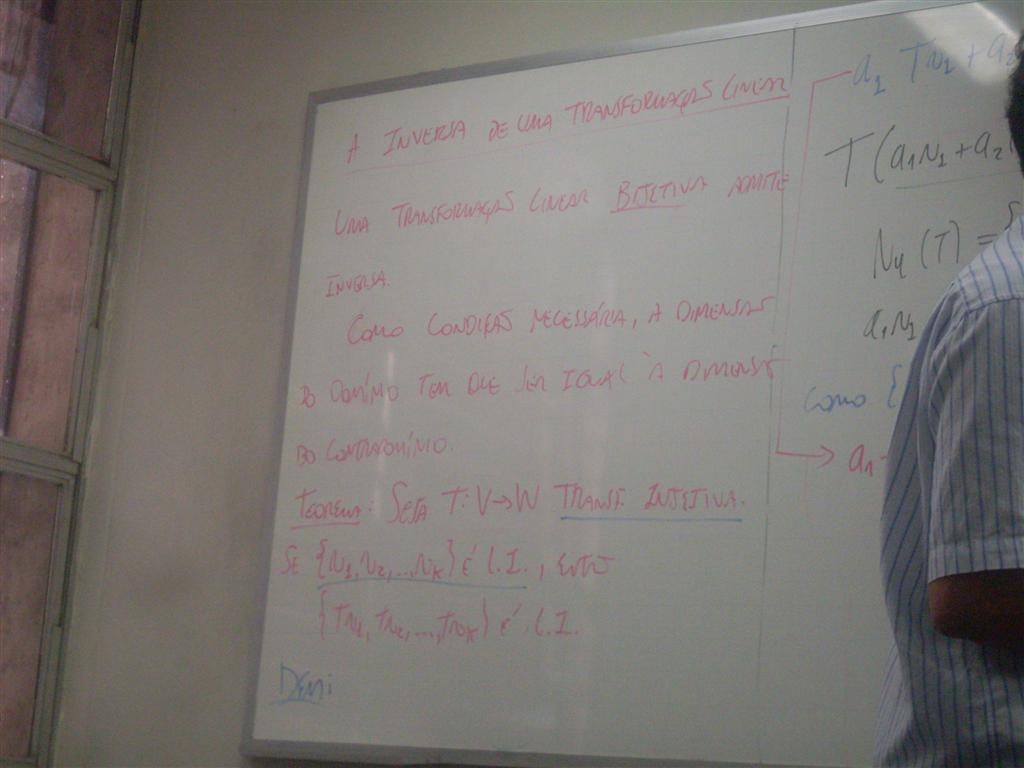 A INVERSA DE UMA TRANSFORMAÇÃO LINEAR
UMA TRANSFORMAÇÃO LINEAR BIJETIVA ADMITE
INVERSA.
COMO CONDIÇÃO NECESSÁRIA, A DIMENSÃO
DO DOMÍNIO TEM QUE SER IGUAL À DIMENSÃO
DO CONTRADOMÍNIO.
TEOREMA: SEJA T: V→W TRANSF. INJETIVA.
SE {v1, v2, ..., vk} É L.I., ENTÃO
{Tv1, Tv2, ..., Tvk} É L.I.
DEM:
a1 Tv1 + a2
T(a1v1 + a2
Nu(T) = {
a1v1
COMO {
a1